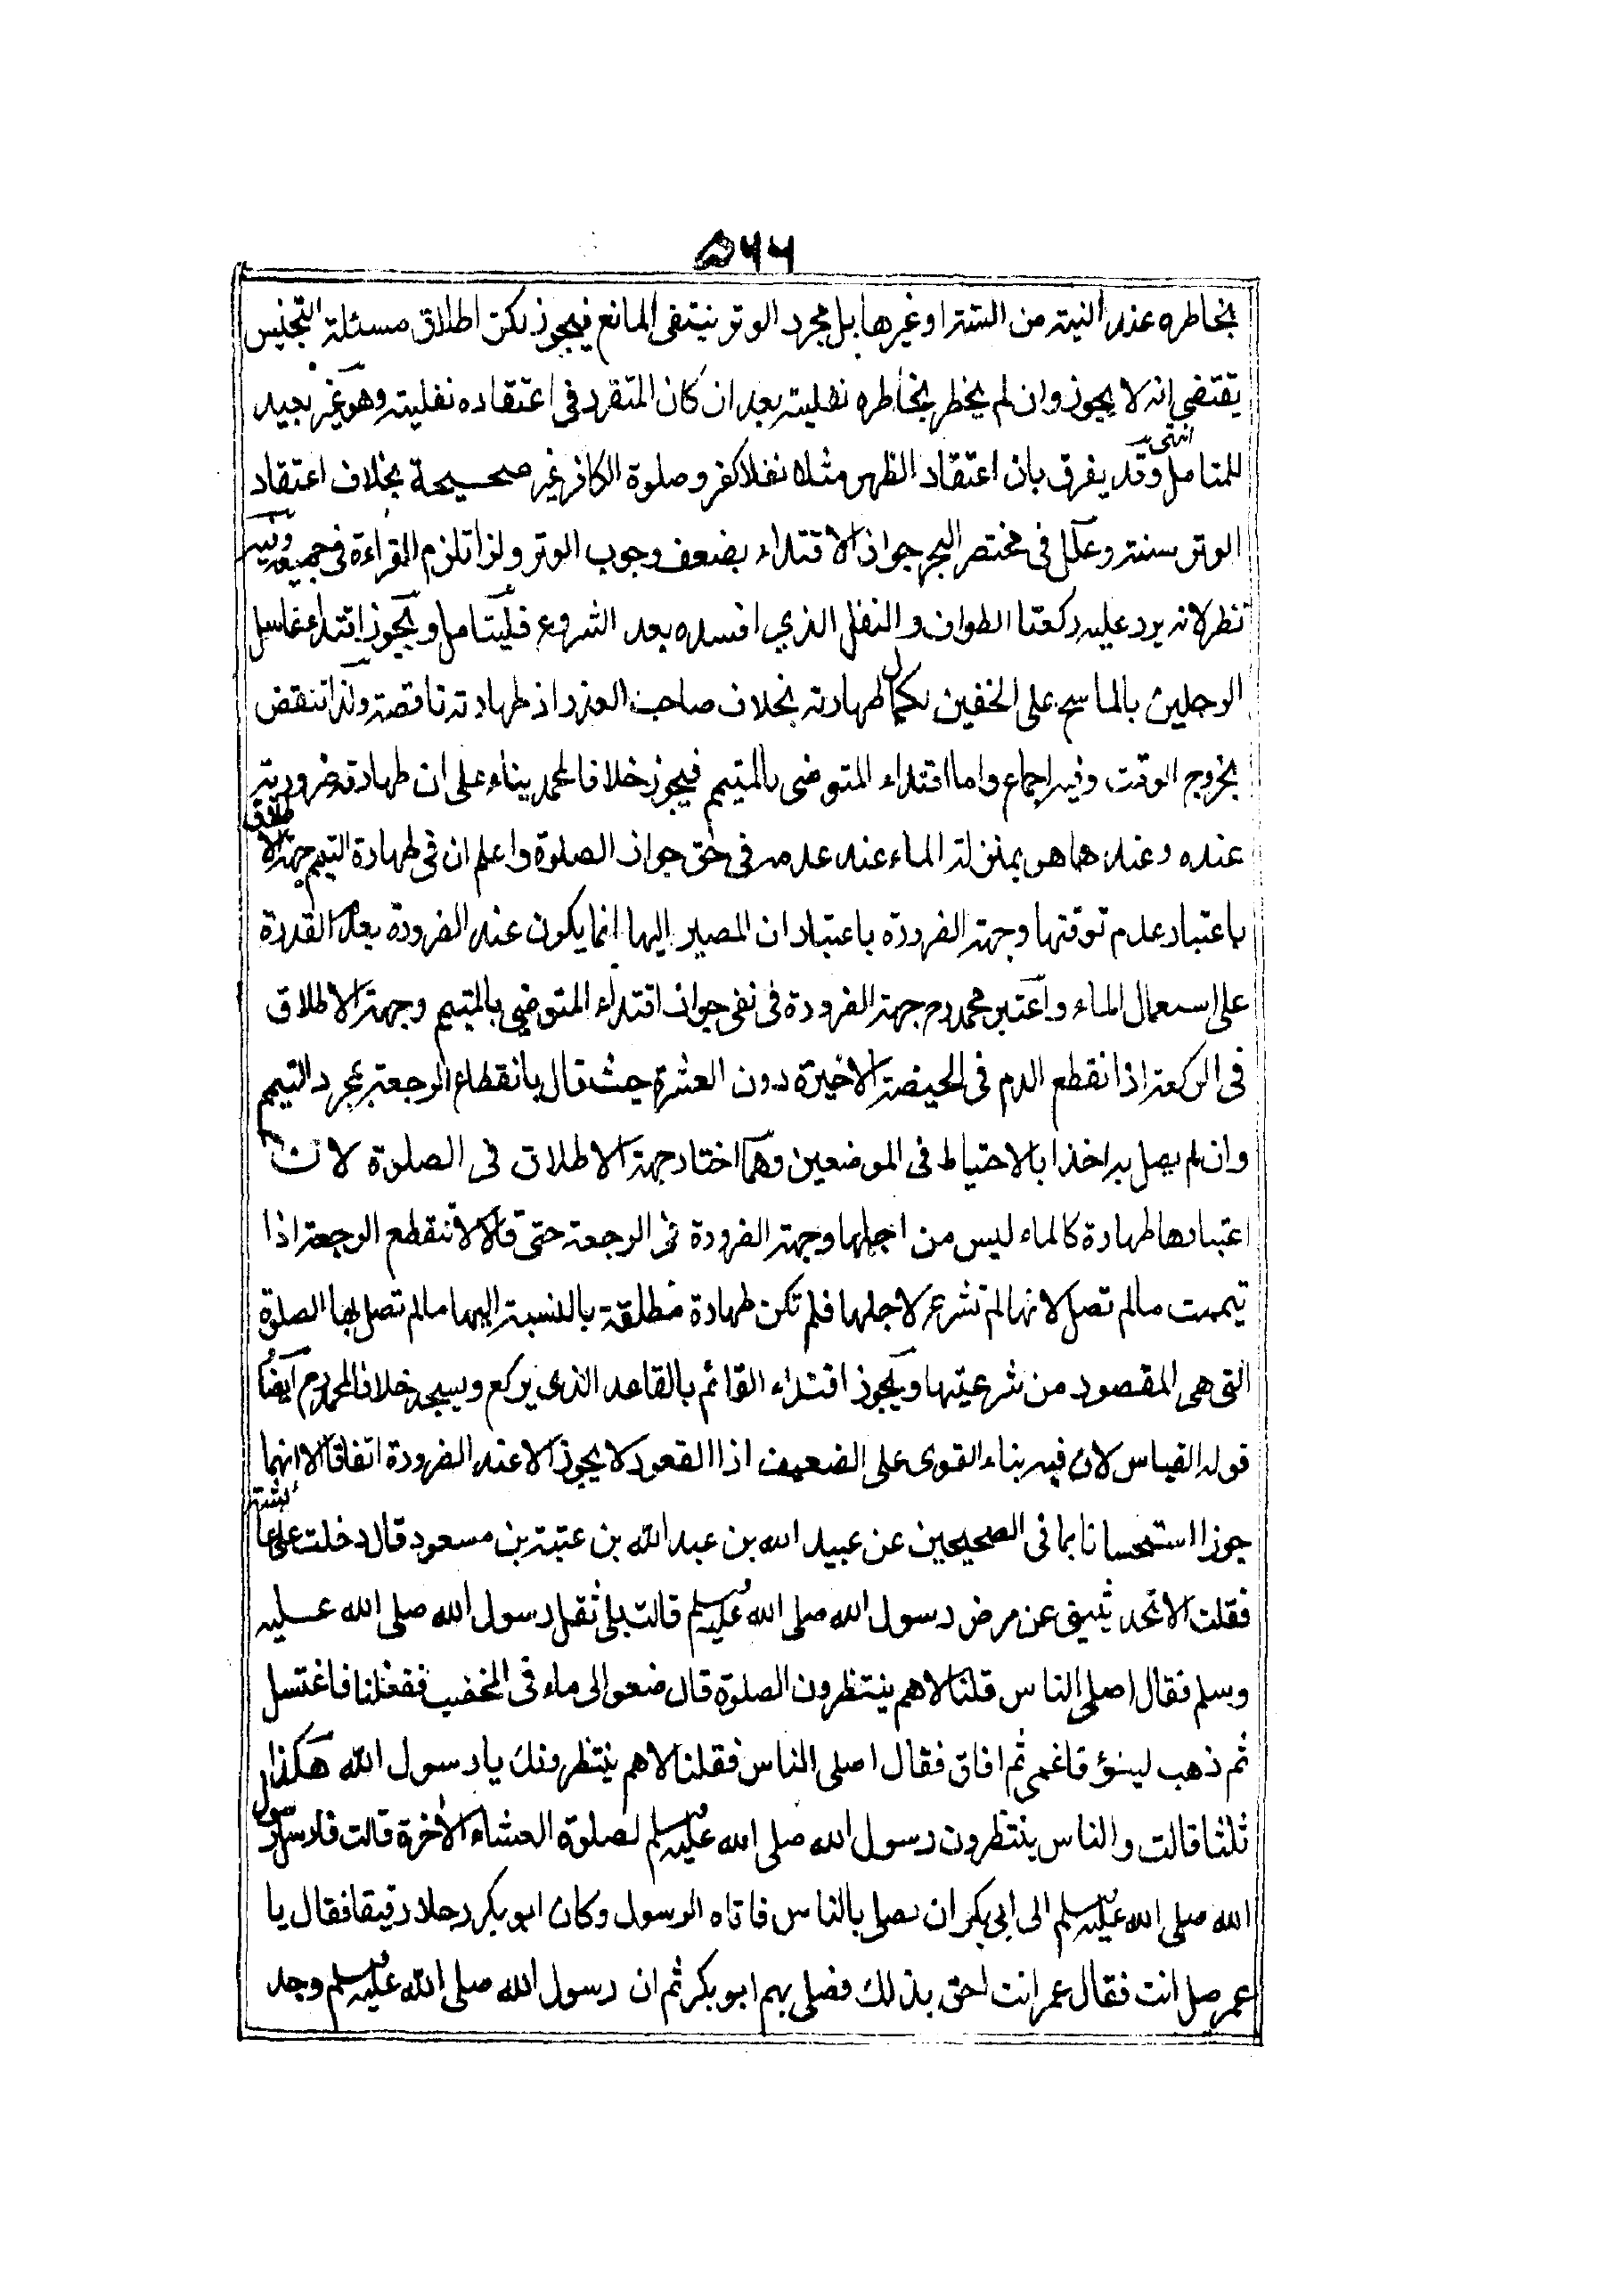 ۵۶۶
بخاطره عند النية من السنة او غيرها بل مجرد الوتر ينتفى المانع فيجوز لكن اطلاق مسئلة التجنيس
يقتضى انه لا يجوز وان لم يخطر بخاطره نفليته بعد ان كان المتقرر فى اعتقاده نفليته وهو غير بعيد
للمتامل انتهى وقد يفرق بان اعتقاد الظهر مثلا نفلا كفر وصلوة الكافر غير صحيحة بخلاف اعتقاد
الوتر سنة وعلل فى مختصر البحر جواز الاقتداء بضعف وجوب الوتر ولذا تلزم القراءة فى جميعه وفيه
نظر لانه يرد عليه ركعتا الطواف والنفل الذي افسده بعد الشروع فليتامل ويجوز اقتداء غاسل
الرجلين بالماسح على الخفين لكمال طهارته بخلاف صاحب العذر اذ طهارته ناقصة ولذا تنقض
بخروج الوقت وفيه اجماع واما اقتداء المتوضى بالمتيمم فيجوز خلافا لمحمد بناء على ان طهارته ضرورية
عنده وعندهما هو بمنزلة الماء عند عدمه فى حق جواز الصلوة واعلم ان فى طهارة التيمم جهة الاطلاق
باعتبار عدم توقتها وجهة الضرورة باعتبار ان المصير اليها انما يكون عند الضرورة بعدم القدرة
على استعمال الماء واعتبر محمد رح جهة الضرورة فى نفى جواز اقتداء المتوضي بالمتيمم وجهة الاطلاق
فى الركعة اذا نقطع الدم فى الحيضة الاخيرة دون العشرة حيث قال بانقطاع الرجعة بمجرد التيمم
وان لم يصل به اخذا بالاحتياط فى الموضعين وهما اختار جهة الاطلاق فى الصلوة لان
اعتبارها طهارة كالماء ليس من اجلها وجهة الضرورة فى الرجعة حتى قالا لا تنقطع الرجعة اذا
تيممت مالم تصل لانها لم تشرع لاجلها فلم تكن طهارة مطلقة بالنسبة اليها مالم تصل بها الصلوة
التى هى المقصود من شرعيتها ويجوز اقتداء القائم بالقاعد الذى يركع ويسجد خلافا لمحمد رح ايضا
قوله القياس لان فيه بناء القوى على الضعيف اذا القعود لا يجوز الا عند الضرورة اتفاقا الا انهما
جوزا استحسانا بما فى الصحيحين عن عبيد الله بن عبد الله بن عتبة بن مسعود قال دخلت على عائشة
فقلت الا تحدثينى عن مرض رسول الله صلى الله عليه وسلم قالت بلى ثقل رسول الله صلى الله عليه
وسلم فقال اصلى الناس قلنا لا هم ينتظرون الصلوة قال ضعوا لى ماء فى المخضب ففعلنا فاغتسل
ثم ذهب لينوء فاغمى ثم افاق فقال اصلى الناس فقلنا لا هم ينتظرونك يا رسول الله هكذا
ثلثا قالت والناس ينتظرون رسول الله صلى الله عليه وسلم لصلوة العشاء الاخرة قالت فارسل رسول
الله صلى الله عليه وسلم الى ابى بكر ان يصلى بالناس فاتاه الرسول وكان ابو بكر رجلا رقيقا فقال يا
عمر صل انت فقال عمر انت احق بذلك فصلى بهم ابو بكر ثم ان رسول الله صلى الله عليه وسلم وجد